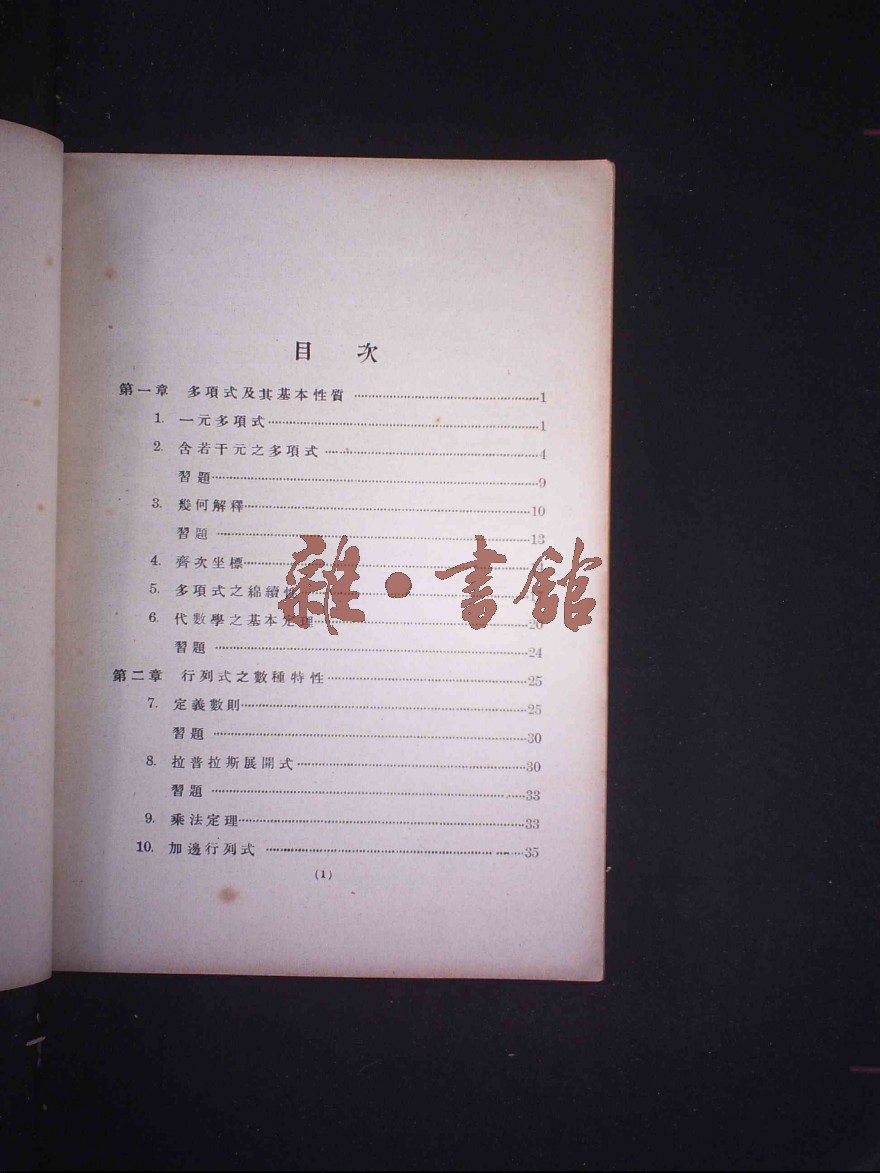 目 次
第一章 多項式及其基本性質 ………1
1. 一元多項式………1
2. 含若干元之多項式 ………4
習題………9
3. 幾何解釋………10
習題 ………13
4. 齊次坐標………
5. 多項式之綿續性
6. 代數學之基本定理………20
習題 ………24
第二章 行列式之數種特性………25
7. 定義數則………25
習題 ………30
8. 拉普拉斯展開式………30
習題 ………33
9. 乘法定理………33
10. 加邊行列式 ………35
(1)
雜·書館